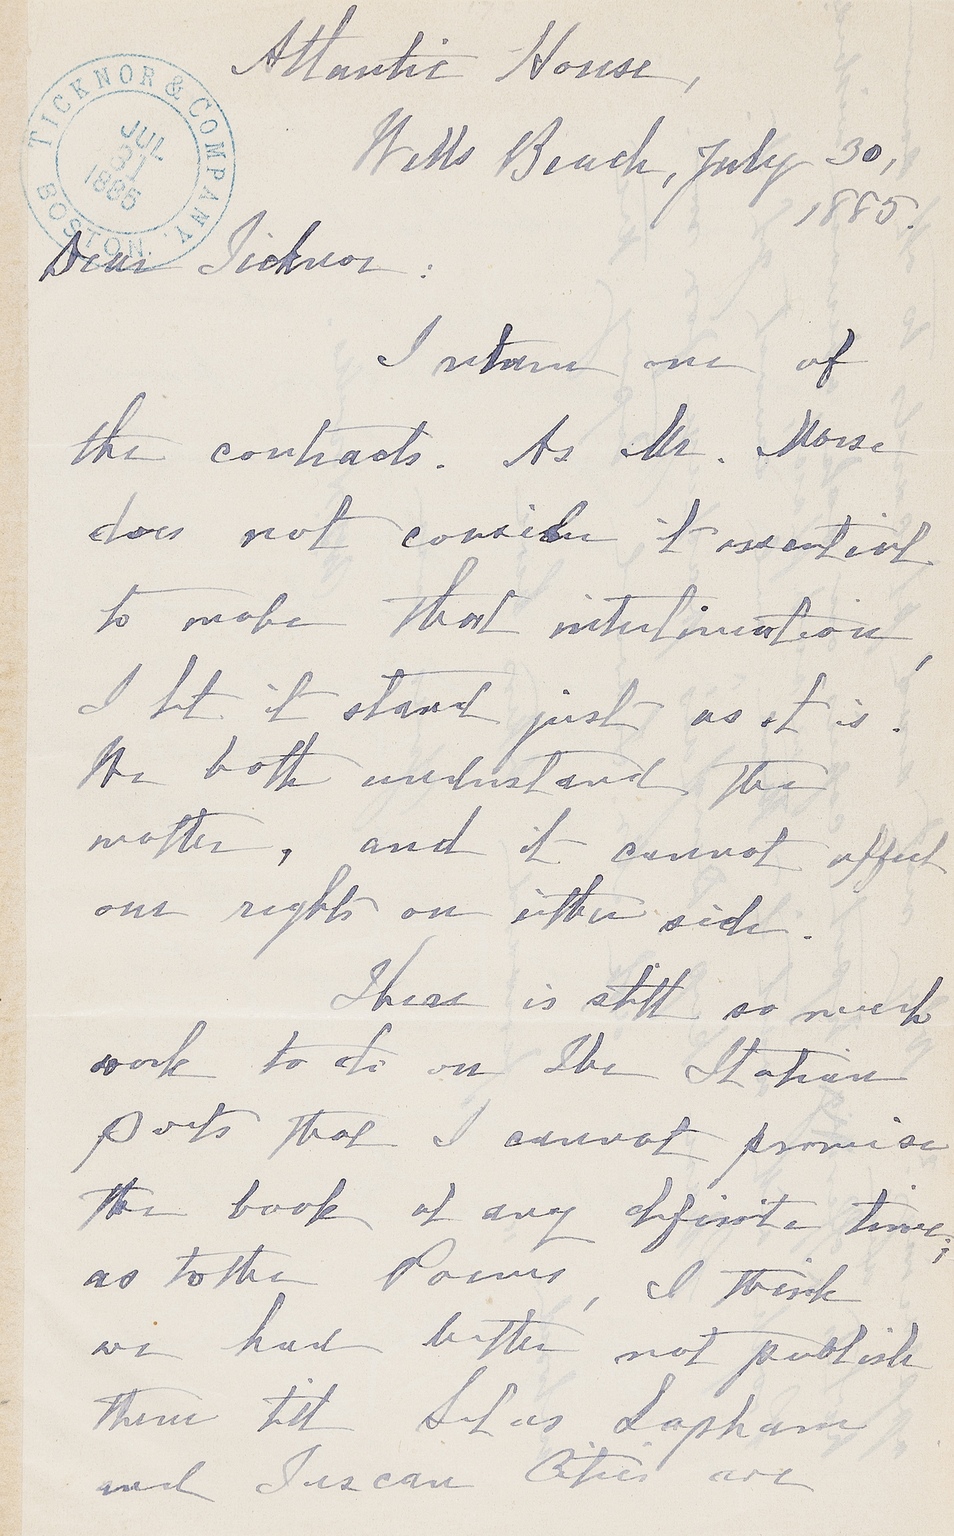 Atlantic House,
TICKNOR & COMPANY,
JUL
31
1885
BOSTON.
Wells Beach, July 30,
1885.
Dear Ticknor:
I return one of
the contracts. As Mr. Morse
does not consider it essential
to make that interlineation,
I let it stand just as it is.
We both understand the
matter, and it cannot affect
our rights on either side.
There is still so much
work to do on the Italian
Poets that I cannot promise
the book at any definite time;
as to the Poems, I think
we had better not publish
them till Silas Lapham
and Tuscan Cities are